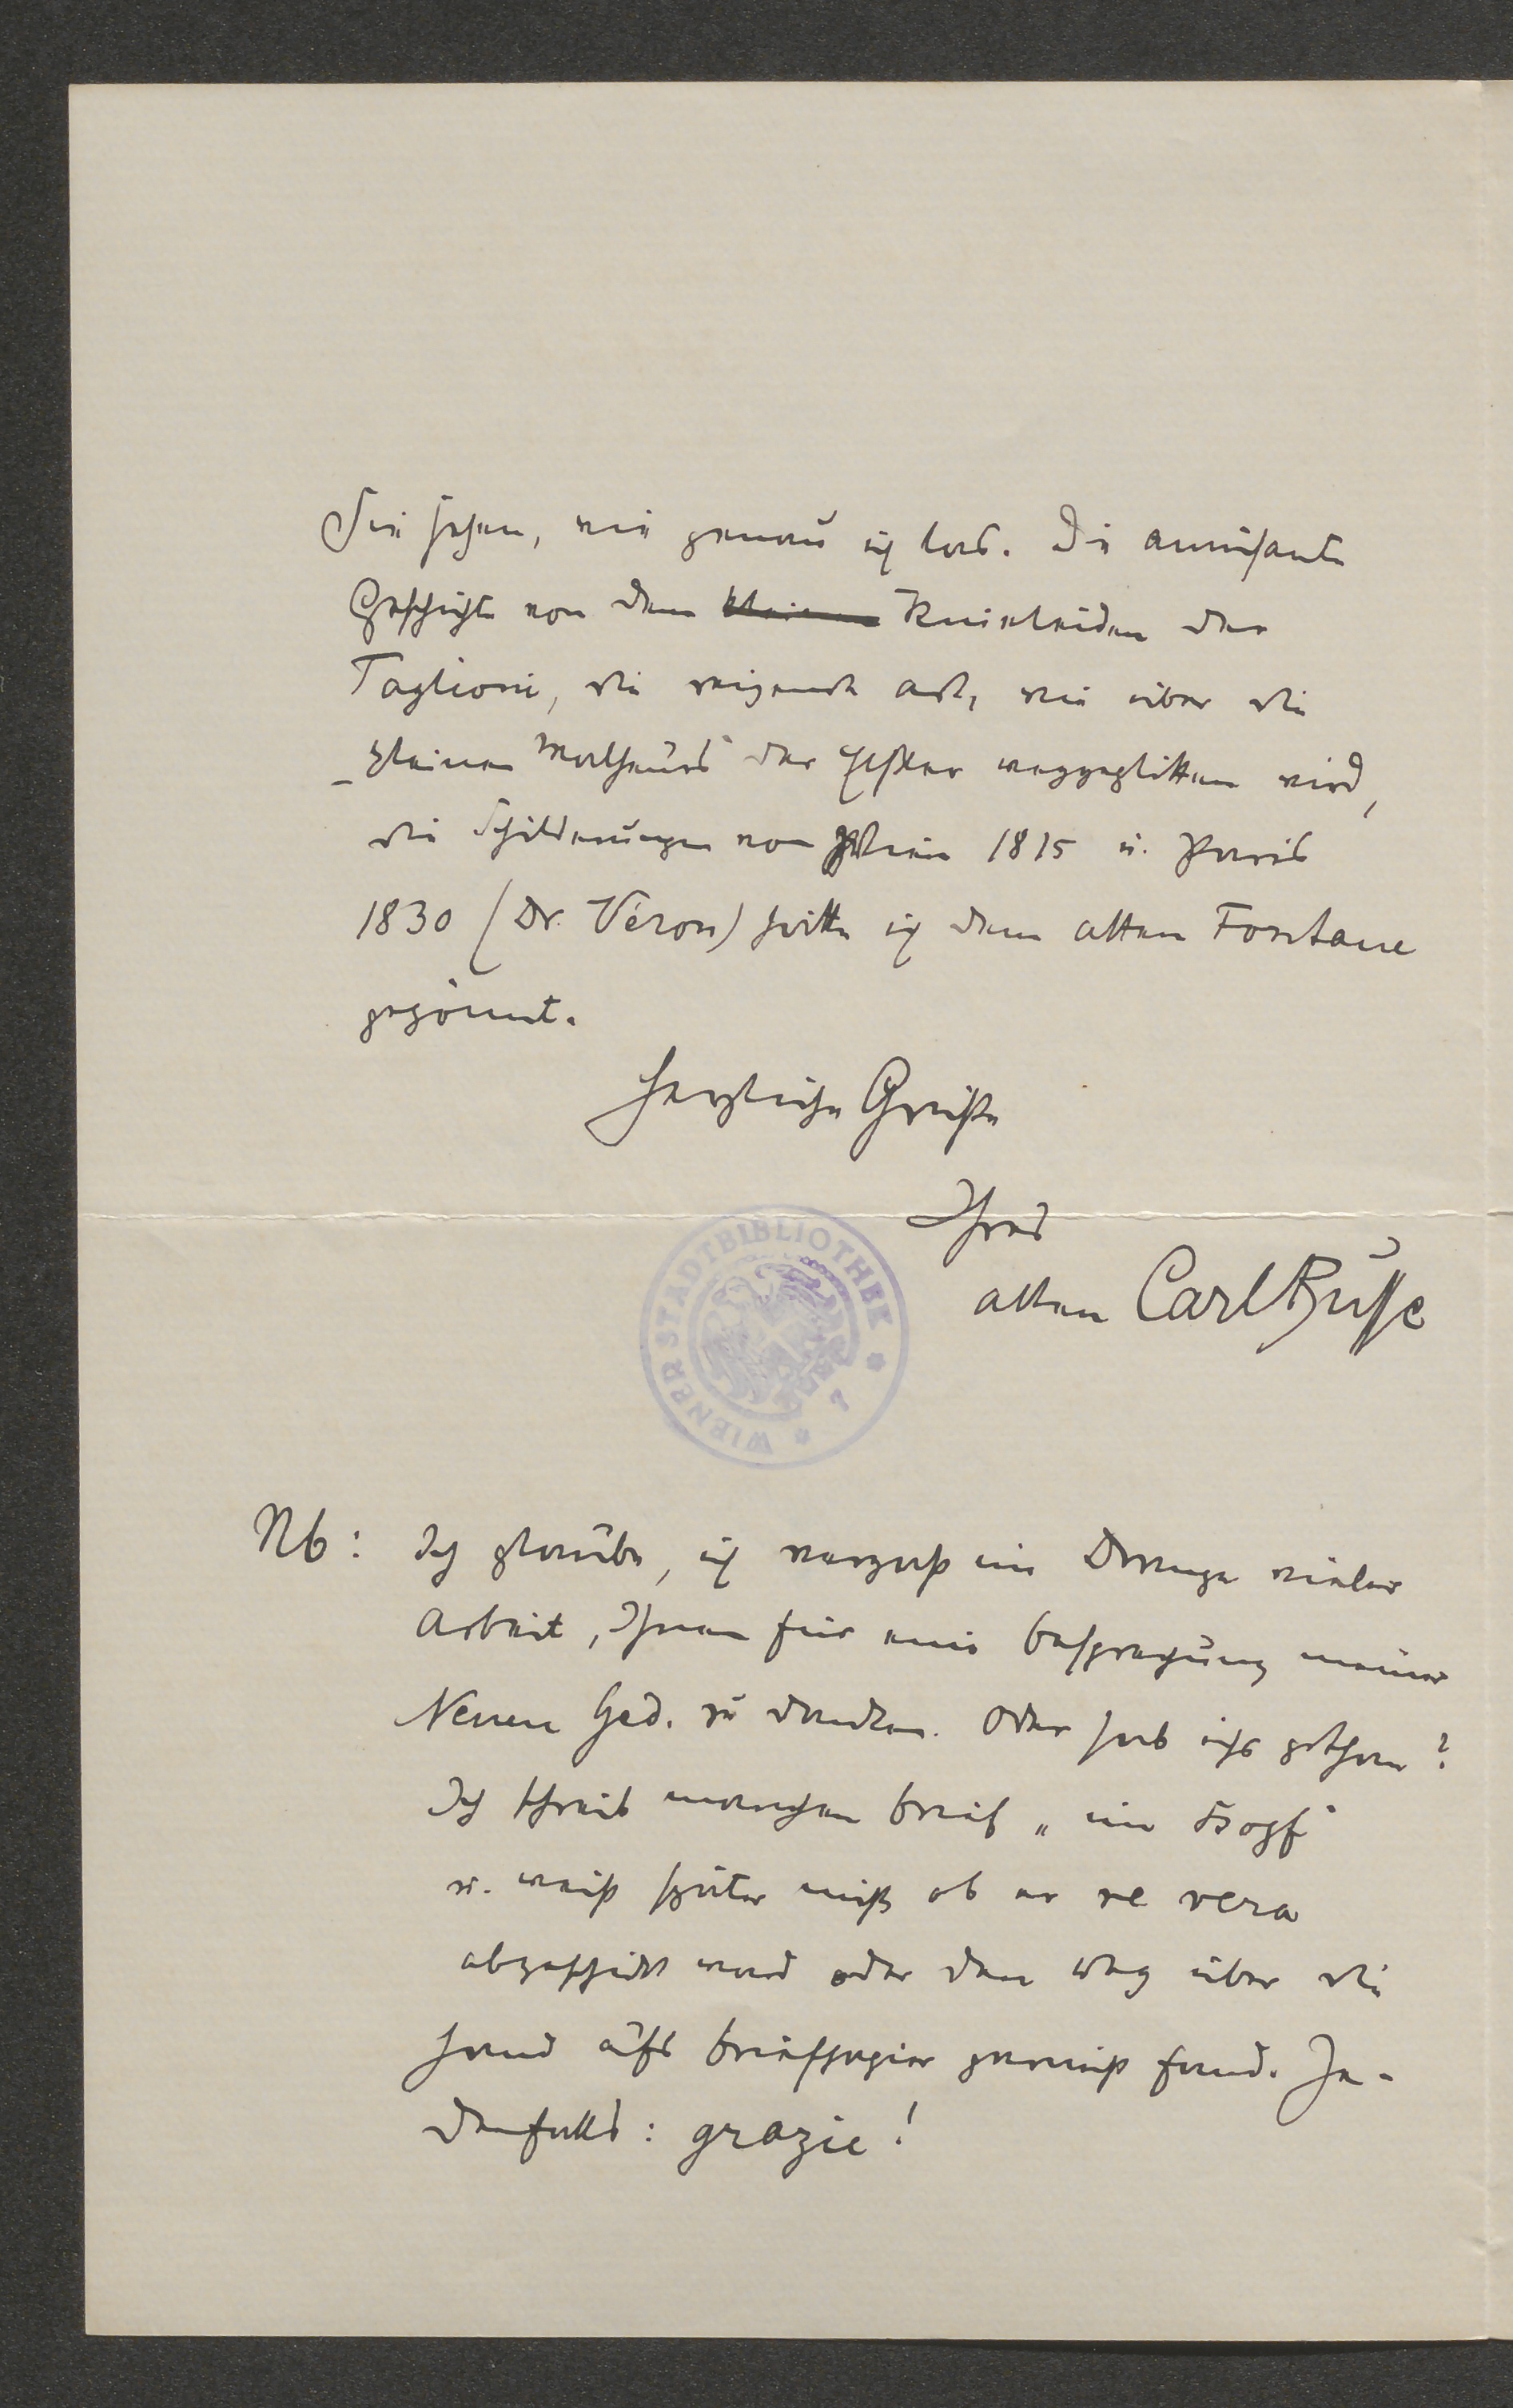 Sie sehen, wie genau ich las. Die amüsante
Geschichte von dem kleinen Knieleiden der
Taglioni, die reizende Art, wie über die
„kleinen Malheurs“ der Elßler weggeglitten wird,
die Schilderungen von Wien 1815 u. Paris
1830 (Dr. Véron) hätte ich dem alten Fontane
gegönnt.
Herzliche Grüße
Ihres
alten Carl Busse
WIENER STADTBIBLIOTHEK * 7 *
Nb: Ich glaube, ich vergaß im Drange vieler
Arbeit, Ihnen für eine Besprechung meiner
Neuen Ged. zu danken. Oder hab ichs gethan?
Ich schreib manchen Brief „im Kopf“
u. weiß später nicht ob er re vera
abgeschickt ward oder den Weg über die
Hand aufs Briefpapier gewiß fand. Je-
denfalls: grazie!